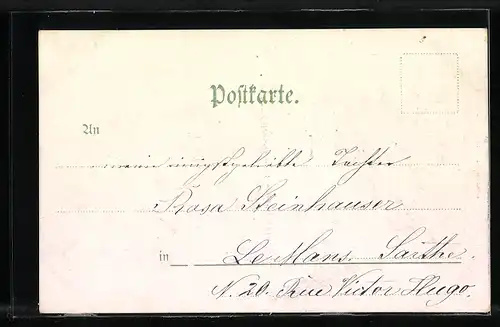 Postkarte.
An
meine innigstgeliebte Tochter
Rosa Steinhauser
in Le Mans. Sarthe.
N. 20. Rue Victor Hugo.